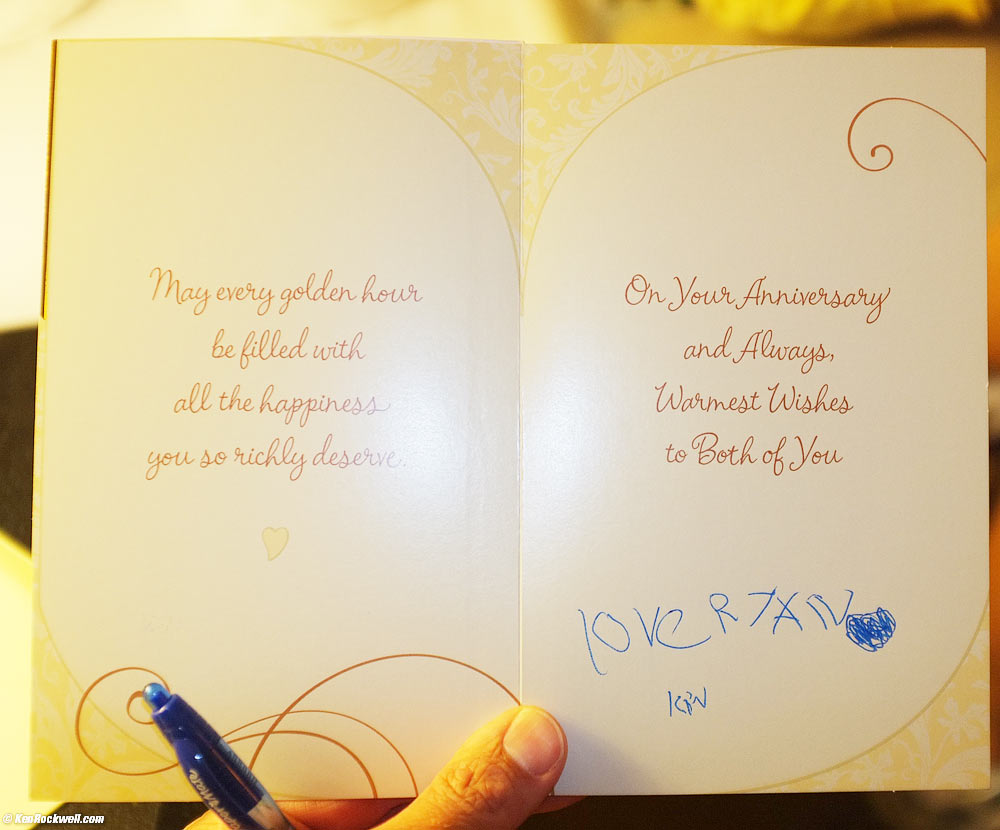 May every golden hour
be filled with
all the happiness
you so richly deserve.
On Your Anniversary
and Always,
Warmest Wishes
to Both of You
LOVE RYAN
© KenRockwell.com